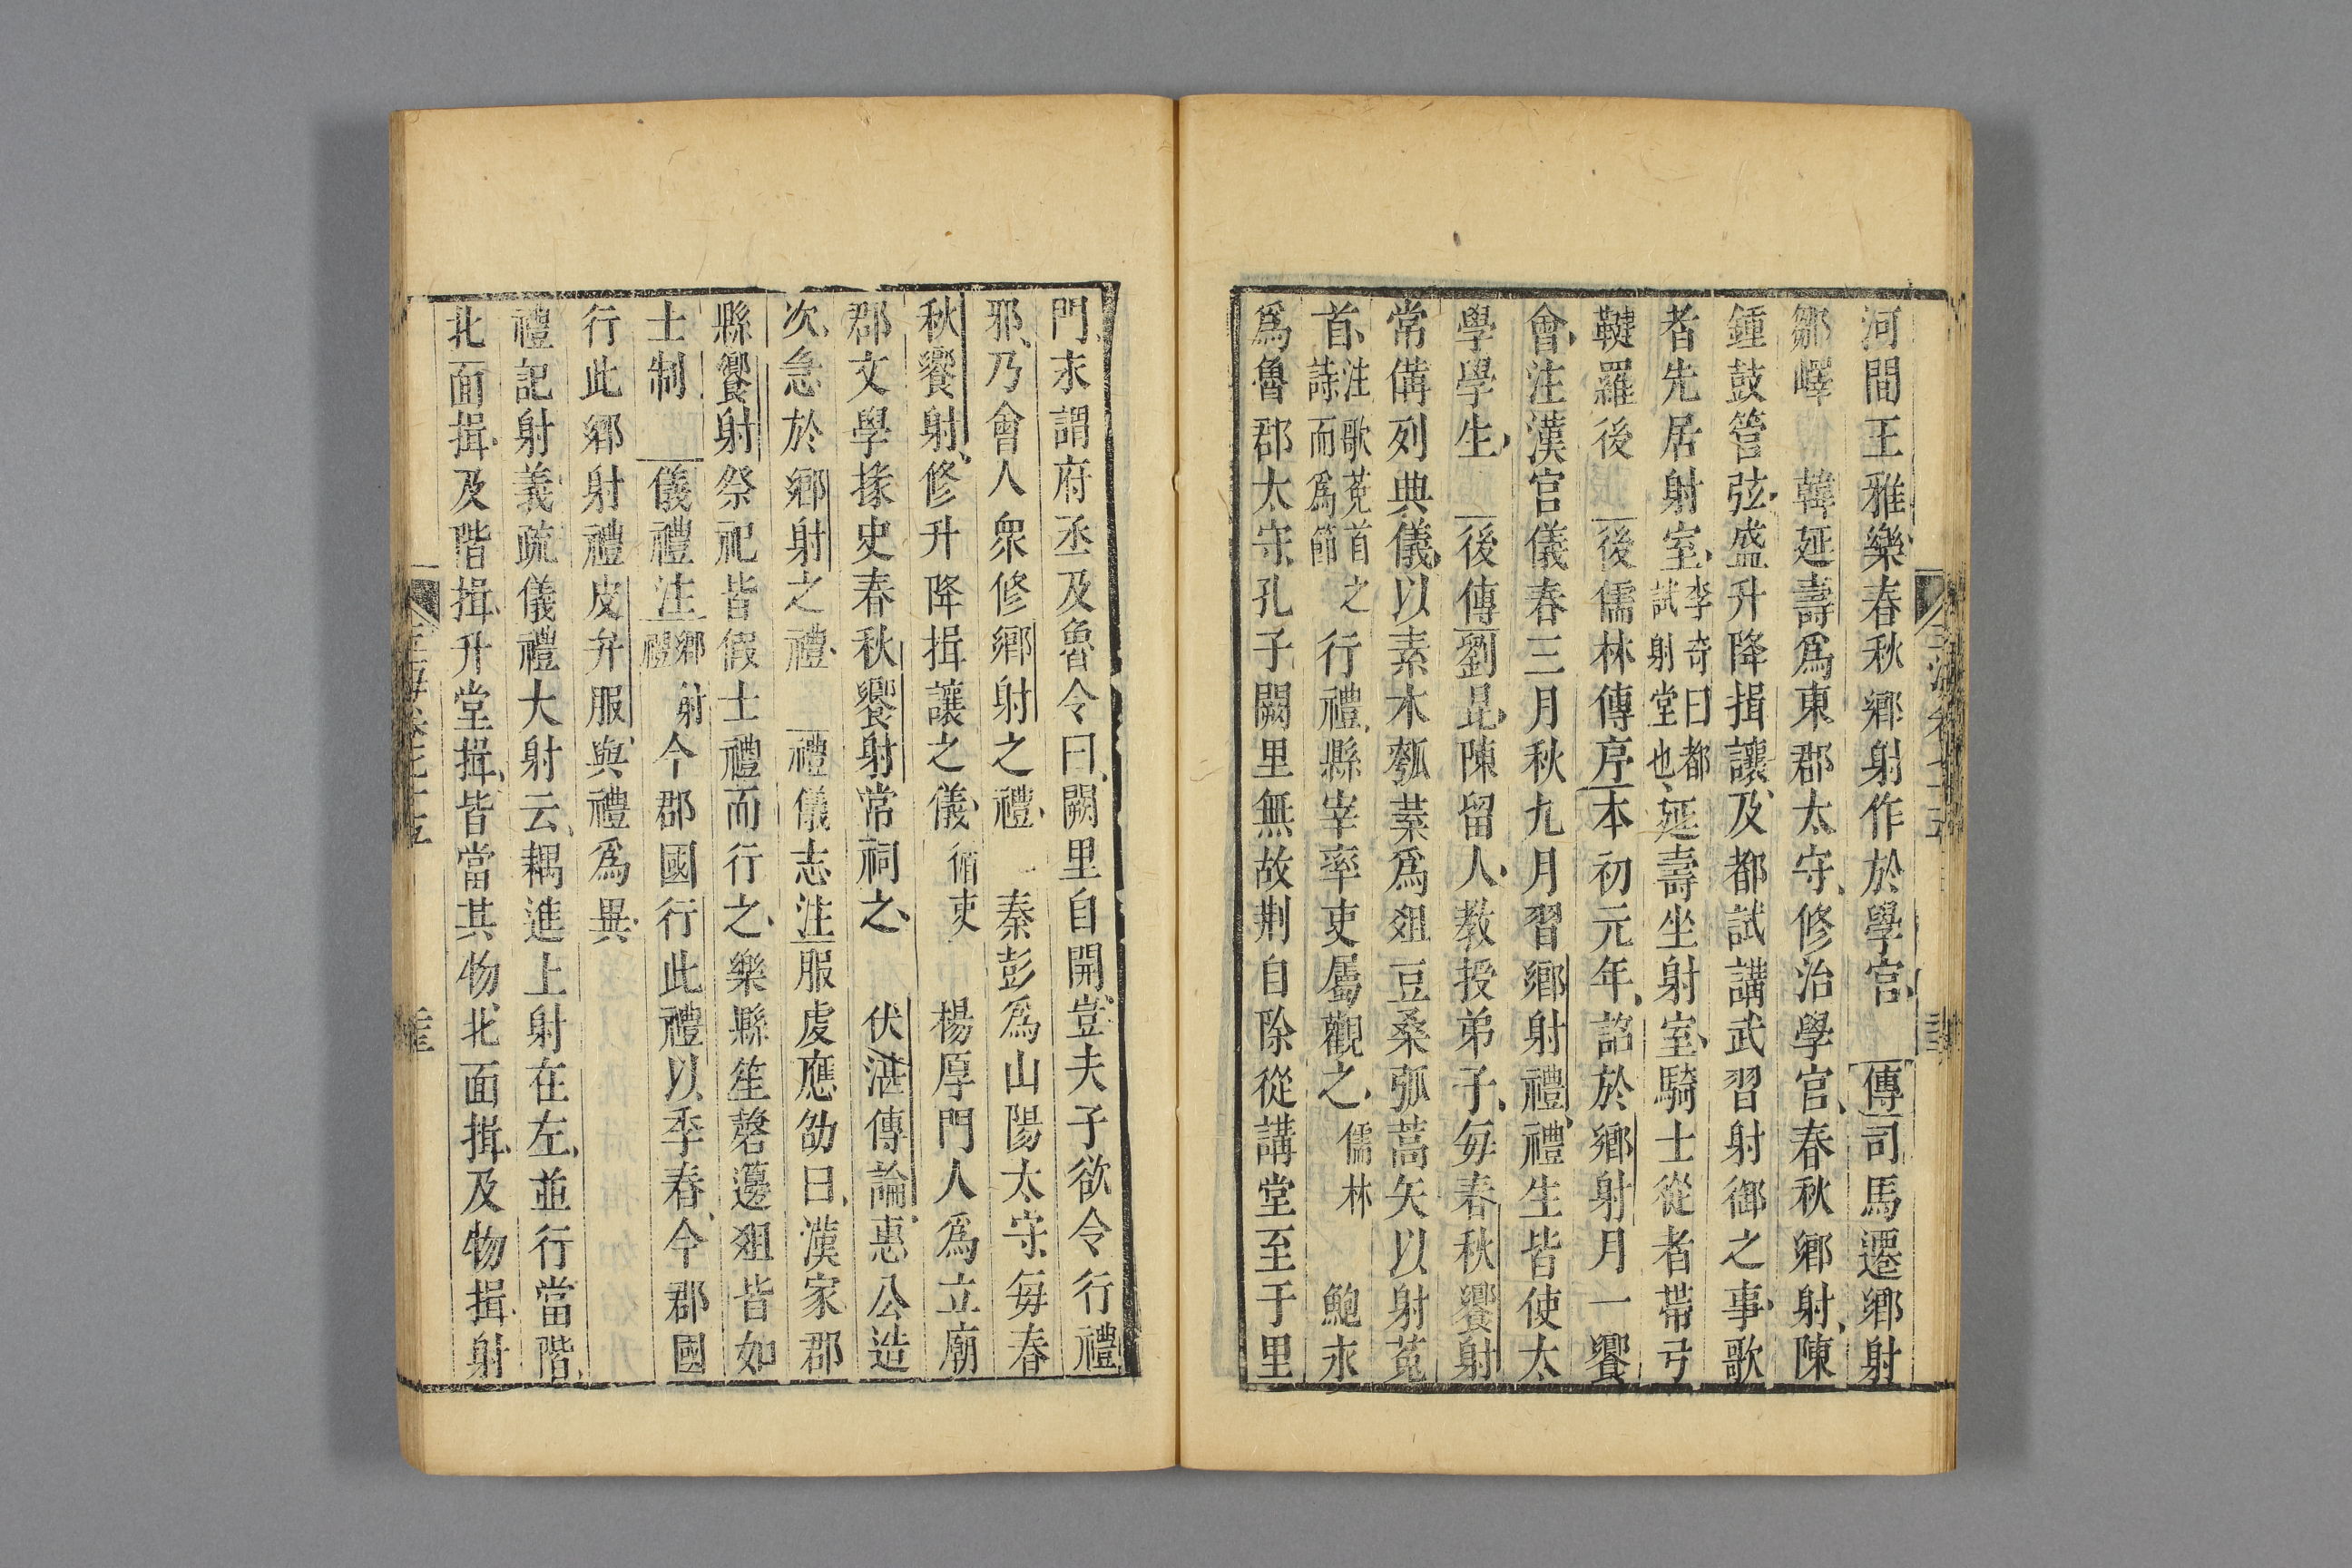 河間王雅樂春秋鄉射作於學官 傳司馬遷鄉射
鄒嶧 韓延壽爲東郡太守修治學官春秋鄉射陳
鍾鼓管弦盛升降揖讓及都試講武習射御之事歌
者先居射室李奇曰都試射堂也延壽坐射室騎士從者帶弓
鞬羅後 後儒林傳序本初元年詔於鄉射月一饗
會注漢官儀春三月秋九月習鄉射禮禮生皆使太
學學生 後傳劉昆陳留人教授弟子每春秋饗射
常備列典儀以素木瓠葉爲俎豆桑弧蒿矢以射菟
首注歌菟首之詩而爲節行禮縣宰率吏屬觀之儒林 鮑永
爲魯郡太守孔子闕里無故荆自除從講堂至于里
門永謂府丞及魯令曰闕里自開豈夫子欲令行禮
邪乃會人衆修鄉射之禮 秦彭爲山陽太守每春
秋饗射修升降揖讓之儀循吏 楊厚門人爲立廟
郡文學掾史春秋饗射常祠之 伏湛傳論惠公造
次急於鄉射之禮 禮儀志注服虔應劭曰漢家郡
縣饗射祭祀皆假士禮而行之樂縣笙磬籩俎皆如
士制 儀禮注鄉射禮今郡國行此禮以季春今郡國
行此鄉射禮皮弁服與禮爲異
禮記射義疏儀禮大射云耦進上射在左並行當階
北面揖及階揖升堂揖皆當其物北面揖及物揖射